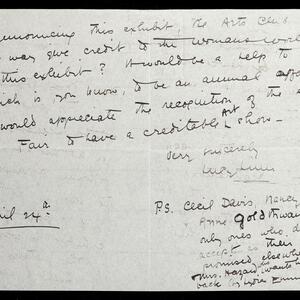 announcing this exhibit, the Arts Club
way give credit to the woman's
this exhibit? It would be a help to
ch is you know, to be an annual
would appreciate the recognition of the
Fair to have a creditable Art show—
Very sincerely
April 24th
P.S. Cecil Davis, Nancy
Anne Goldthwaite
only ones who d
accept as their
promised elsewhere
Mrs. Hazard wants
back